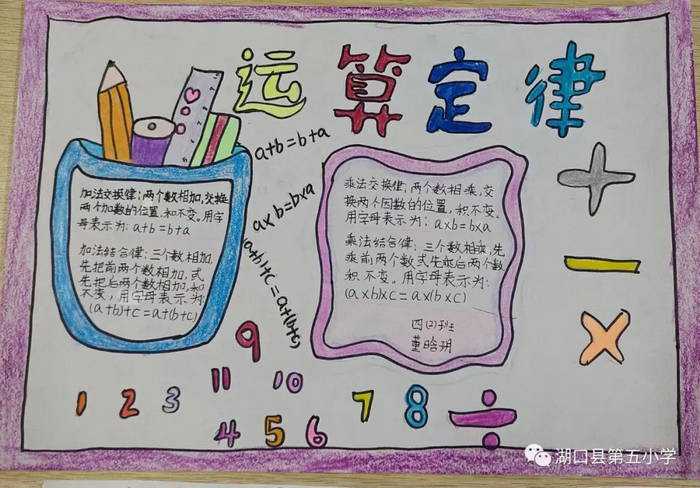 运算定律
加法交换律:两个数相加,交换
两个加数的位置,和不变。用字
母表示为:a+b=b+a
加法结合律:三个数相加,
先把前两个数相加,或
先把后两个数相加,和
不变,用字母表示为:
(a+b)+c=a+(b+c)
a+b=b+a
a×b=b×a
(a+b)+c=a+(b+c)
乘法交换律:两个数相乘,交
换两个因数的位置,积不变。
用字母表示为:a×b=b×a
乘法结合律:三个数相乘,先
乘前两个数或先乘后两个数
积不变。用字母表示为:
(a×b)×c=a×(b×c)
四(2)班
董晗玥
+
−
×
÷
9
11 10
1 2 3
4 5 6
7 8
湖口县第五小学